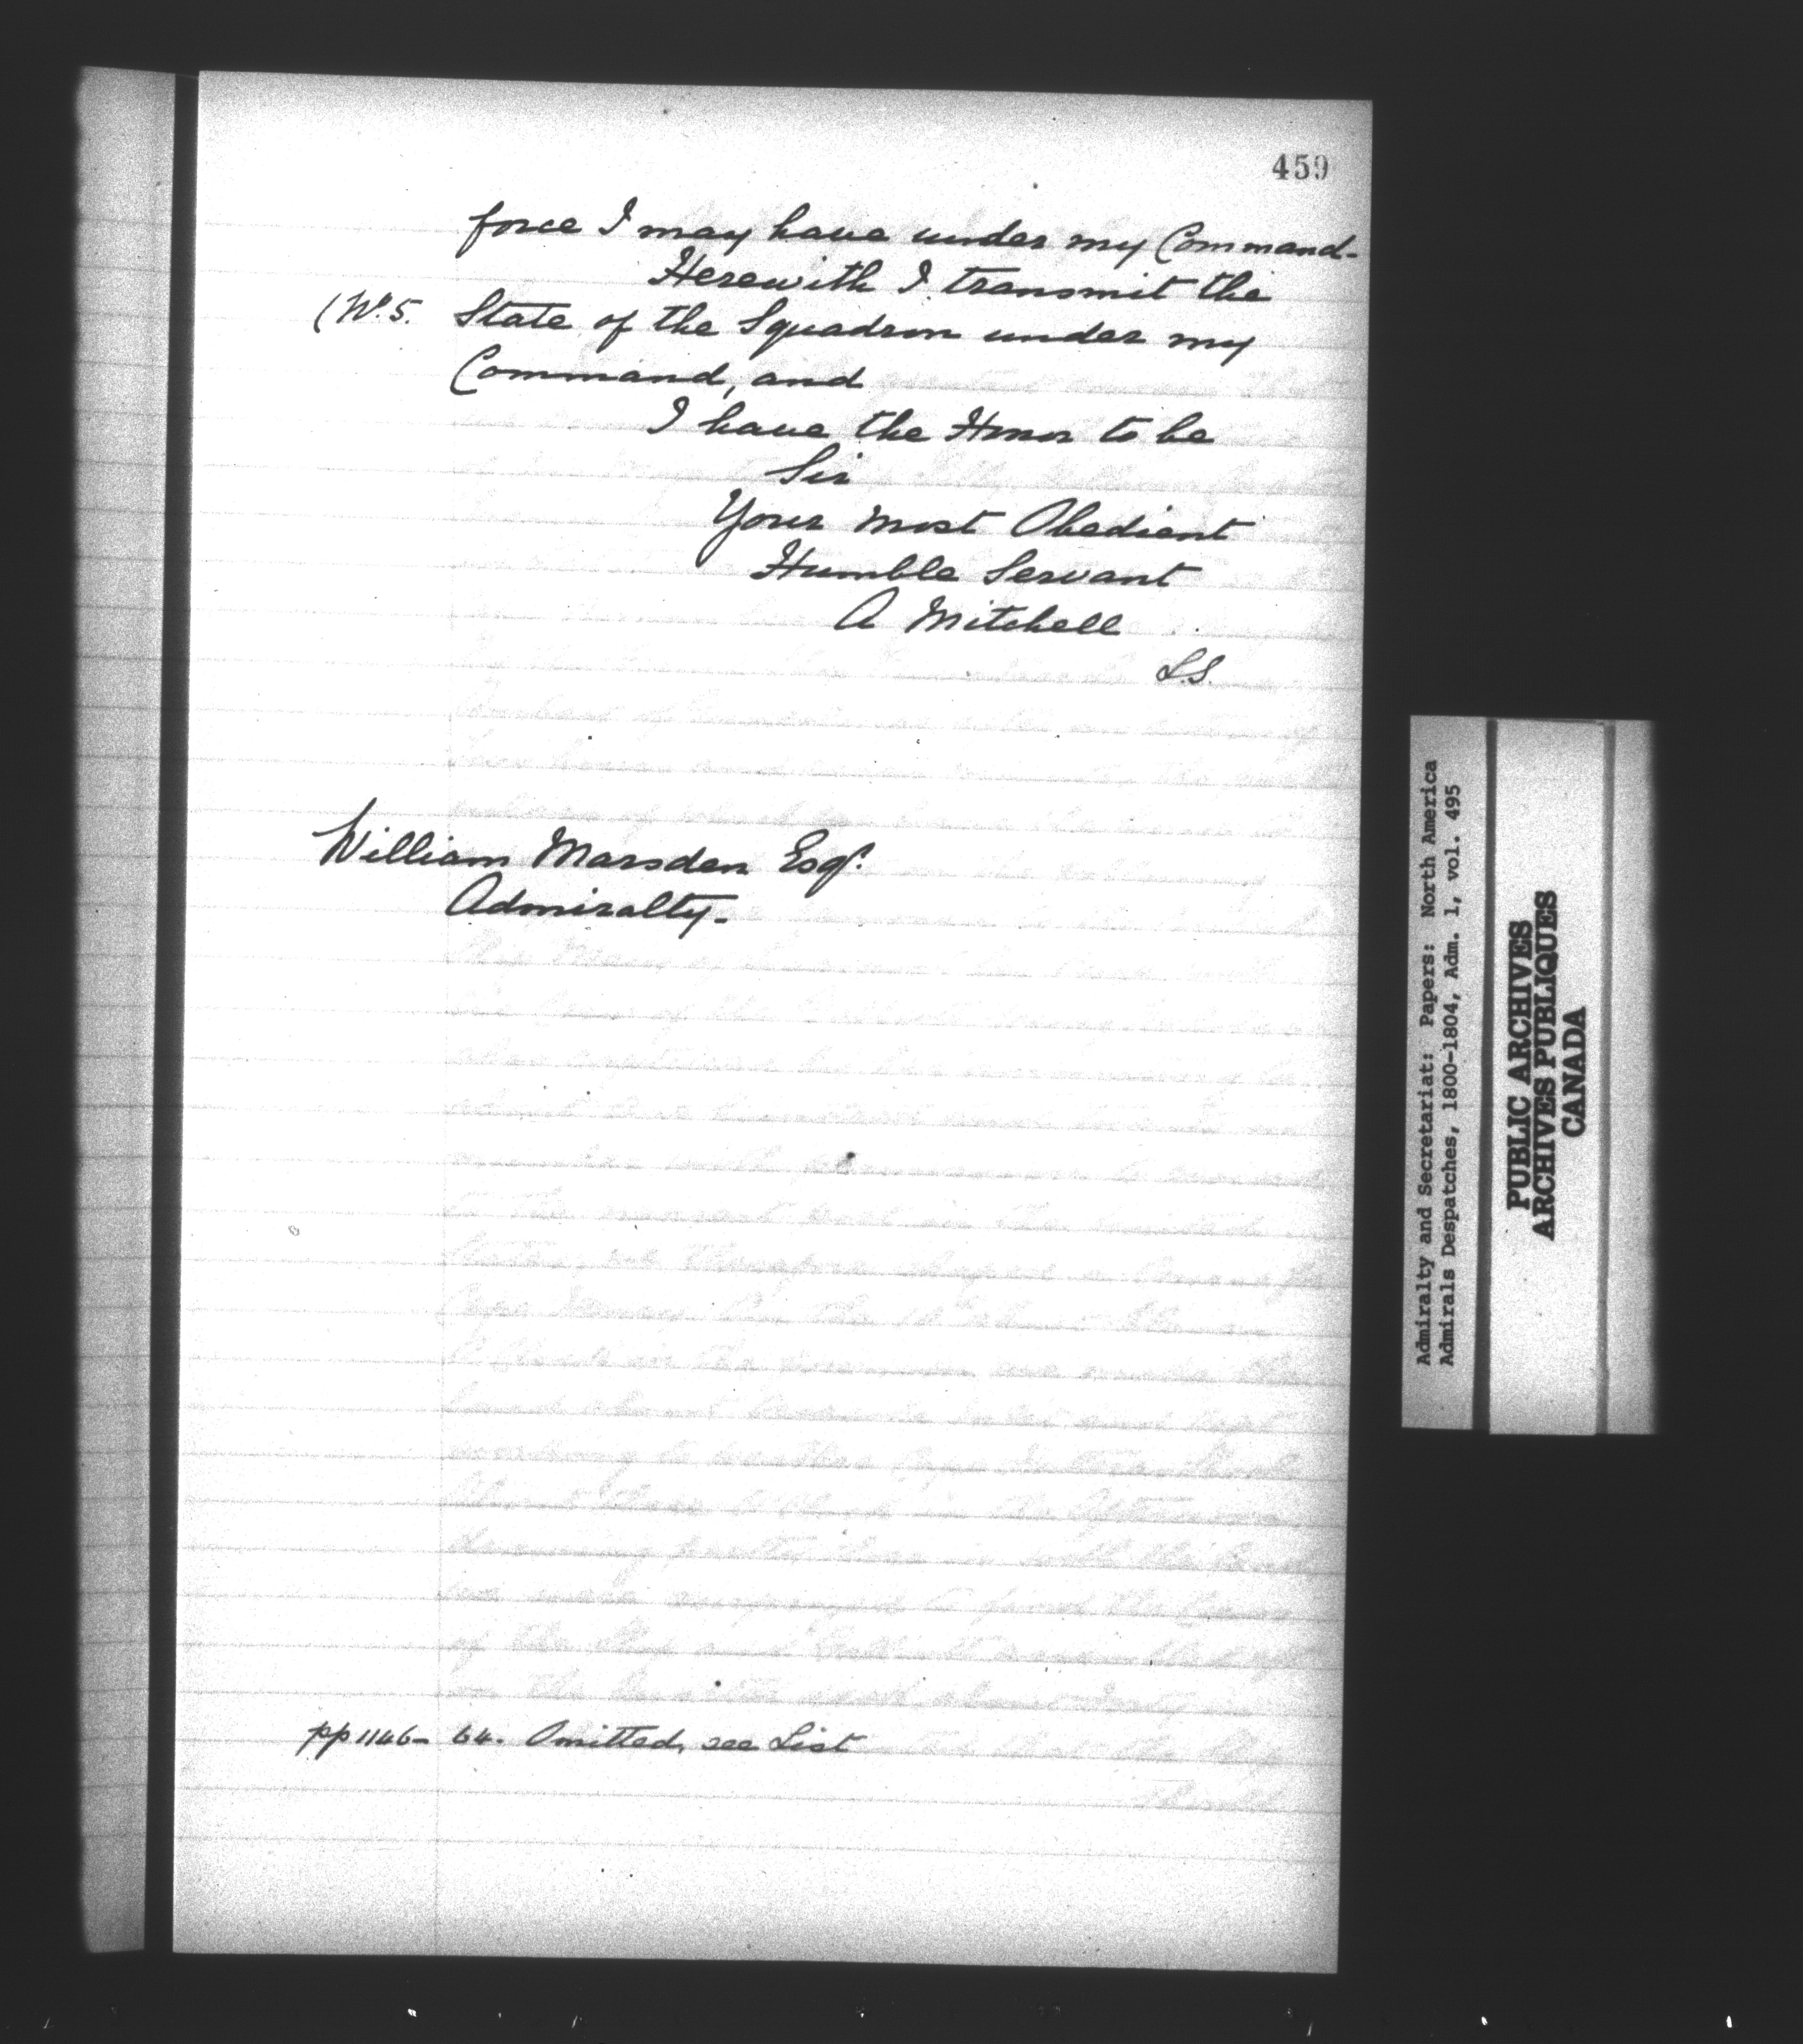 459
force I may have under my Command-
Herewith I transmit the
(No. 5. State of the Squadron under my
Command, and
I have the Honor to be
Sir
Your Most Obedient
Humble Servant
A Mitchell
L.S.
William Marsden Esqr.
Admiralty.
pp 1146- 64. Omitted, see List
Admiralty and Secretariat: Papers: North America
Admirals Despatches, 1800-1804, Adm. 1, vol. 495
PUBLIC ARCHIVES
ARCHIVES PUBLIQUES
CANADA